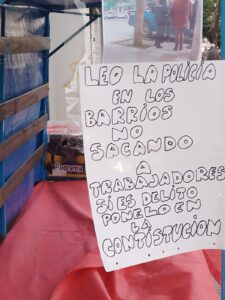 LEO LA POLICÍA
EN LOS
BARRIOS
NO
SACANDO
A
TRABAJADORES
SI ES DELITO
PONELO EN
LA
CONTISTUCION